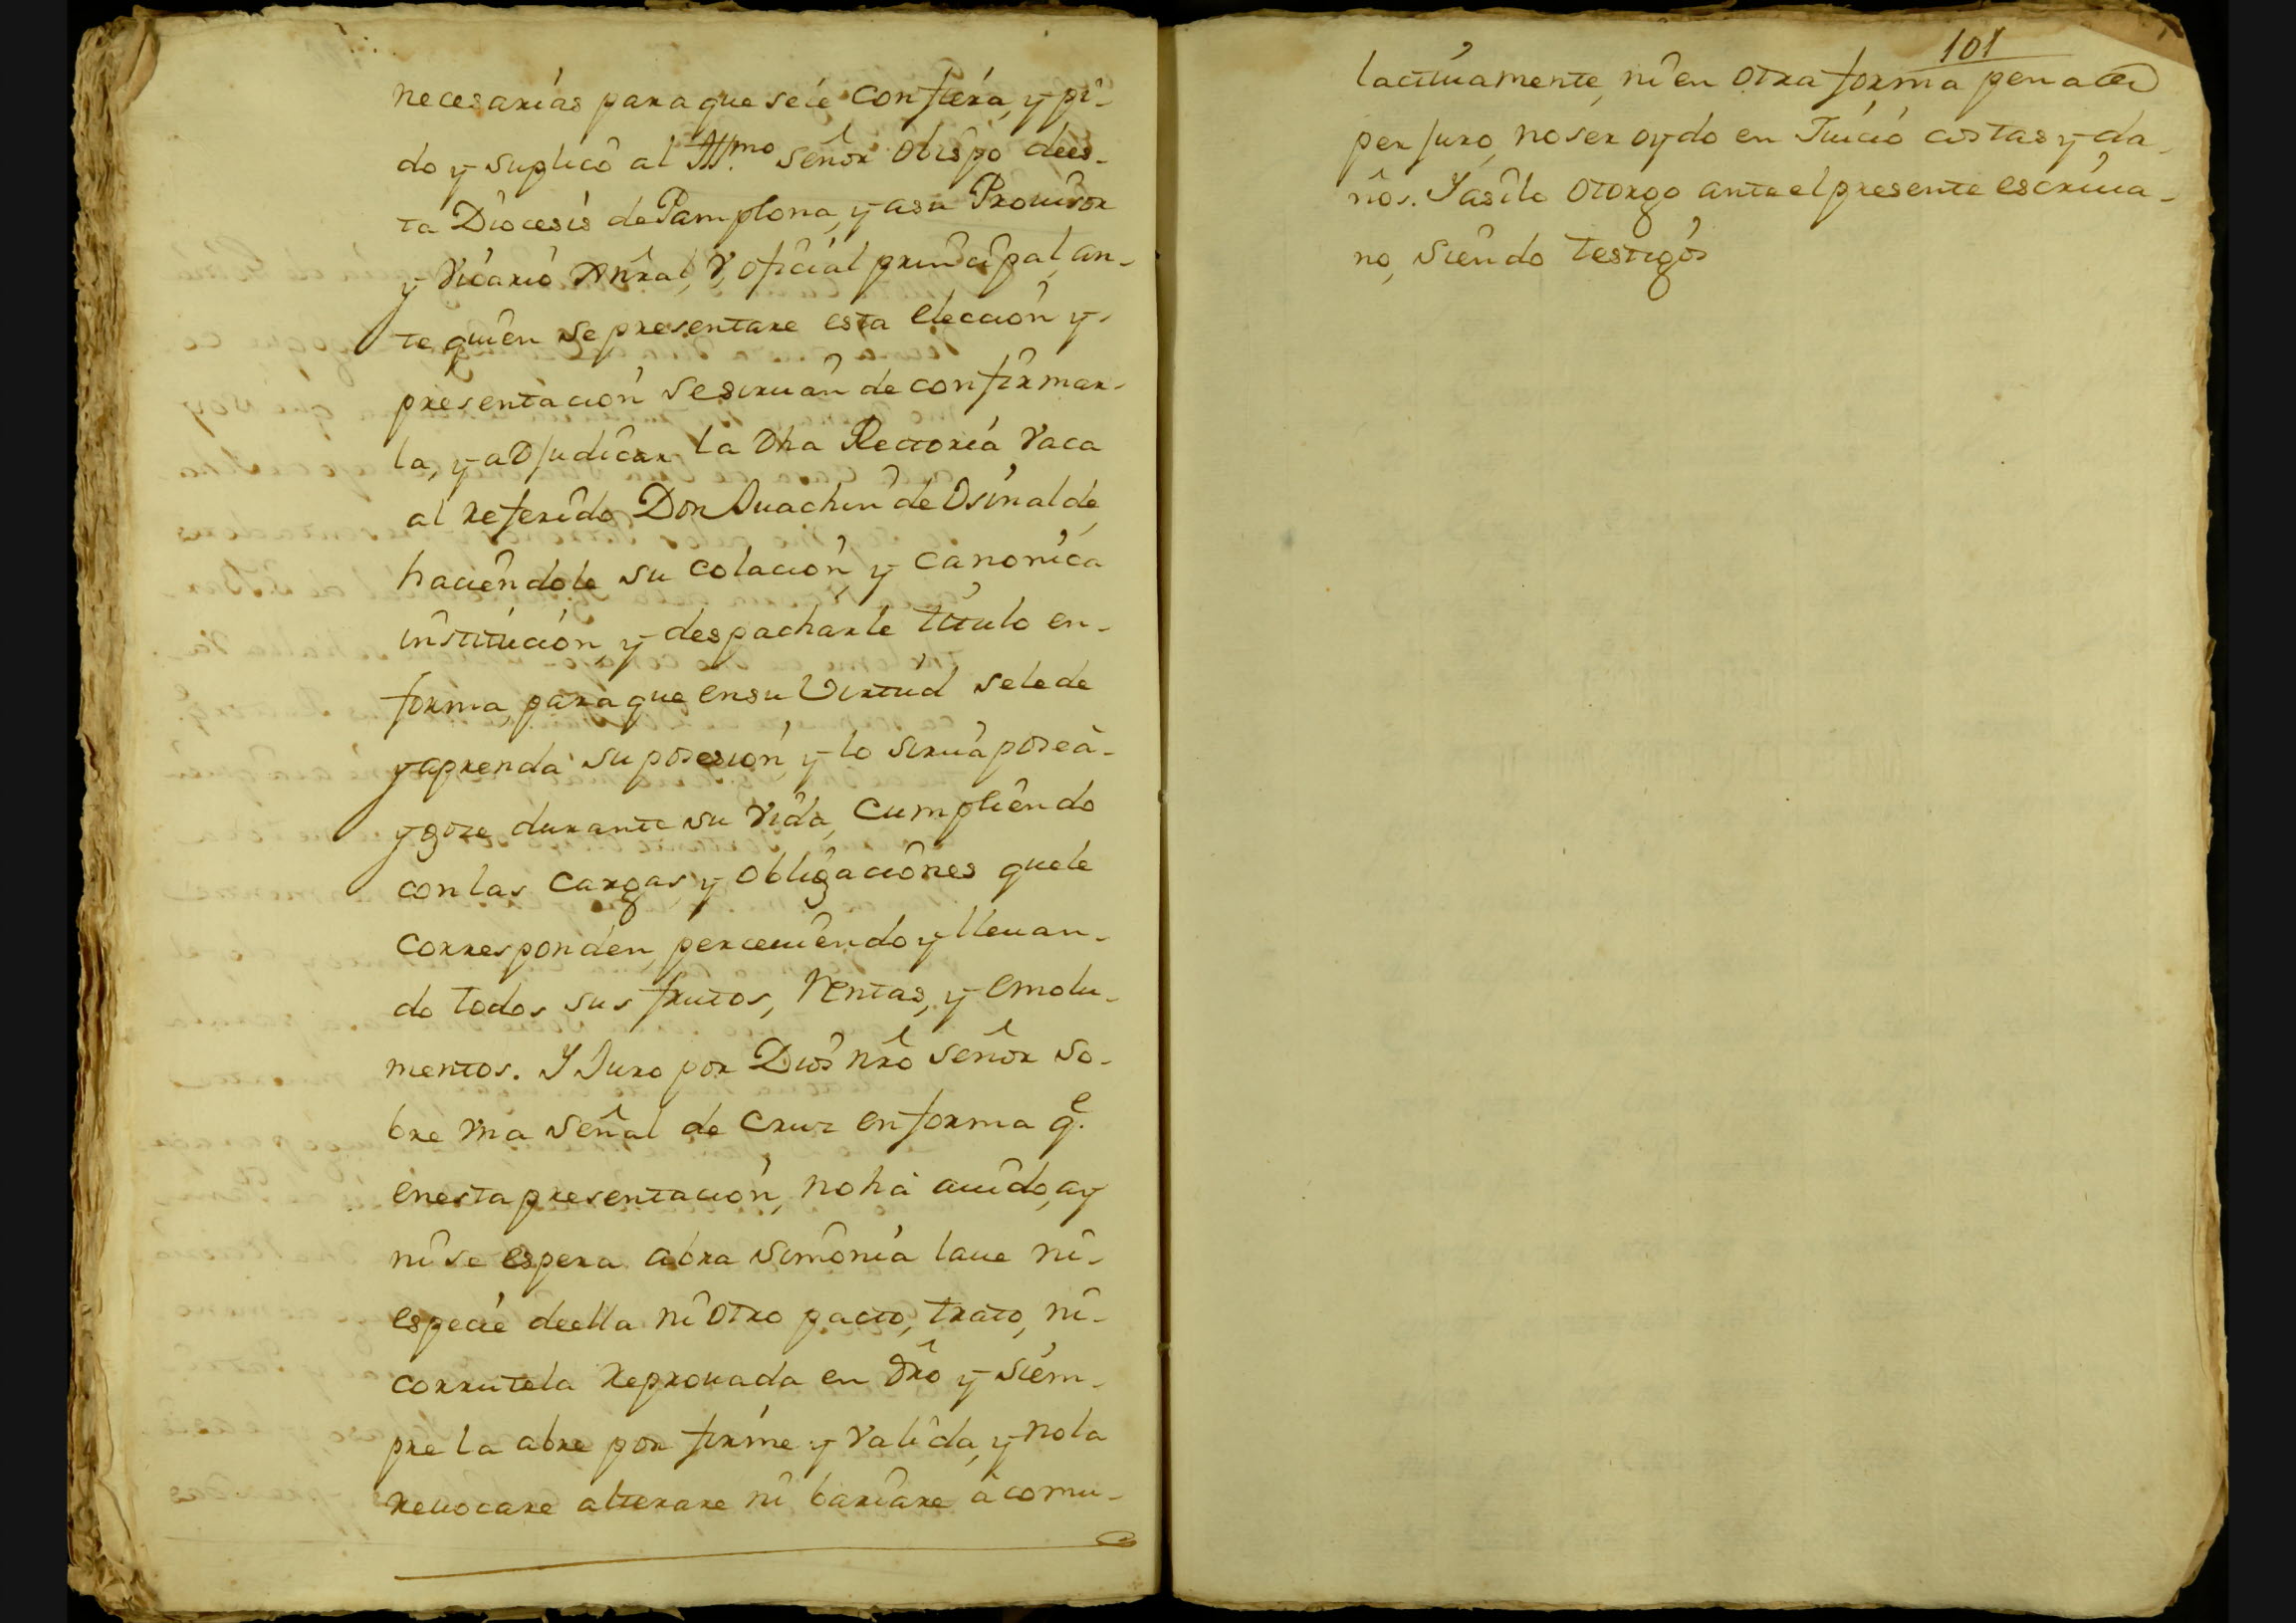 necesarias para que sele confiera, y pi-
do y suplico al Illmo. señor obispo dees-
ta Diocesis de Pamplona, y asu Prouisor
y Vicario Gñral, y, oficial principal, an-
te quien se presentare esta eleccion y
presentacion se siruan de confirmar-
la, y adjudicar la dha Rectoria vaca
al referido Don Juachin de Osinalde,
haciendole su colacion, y canonica
institucion, y despacharle titulo en-
forma, para que ensu Virtud selede
y aprenda su posesion, y lo sirua posea-
y goze durante su vida, cumpliendo
con las cargas, y obligaciones quele
corresponden, perceuiendo y lleuan-
do todos sus frutos, Rentas, y emolu-
mentos. Y Juro por Dios nrõ señor so-
bre vna señal de Cruz en forma q.e
enesta presentacion, no ha auido, ay
ni se espera abra simonia laue ni-
especie deella ni otro pacto, trato, ni-
corrutela reprouada en drõ y siem-
pre la abre por firme y valida, y nola
reuocare alterare ni bariare a comu-
101
latiuamente, ni en otra forma pena de
perjuro, no ser oydo en Juicio costas y da-
ños. Y asilo otorgo ante el presente escriua-
no, siendo testigos